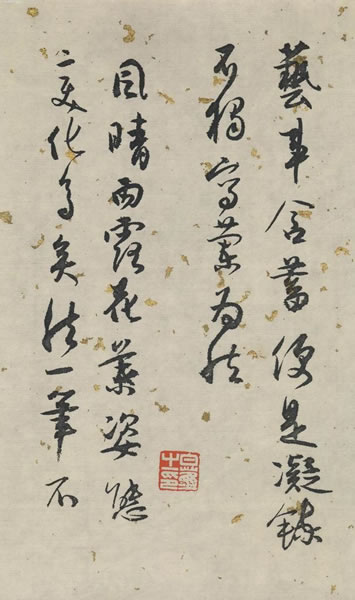 藝事含蓄便是凝鍊
不獨寫蘭為然
風晴雨露花葉姿態
之變化多矣然一筆不